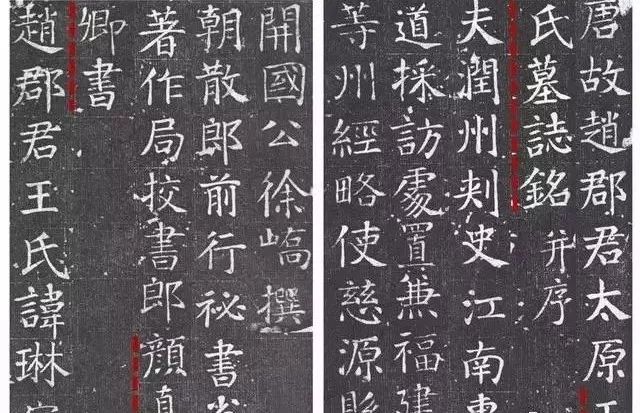 唐故趙郡君太原
氏墓誌銘并序
夫潤州刾史江南東
道採訪處置兼福建
等州經略使慈源縣
開國公徐嶠撰
朝散郎前行祕書省
著作局挍書郎顔真
卿書
趙郡君王氏諱琳字